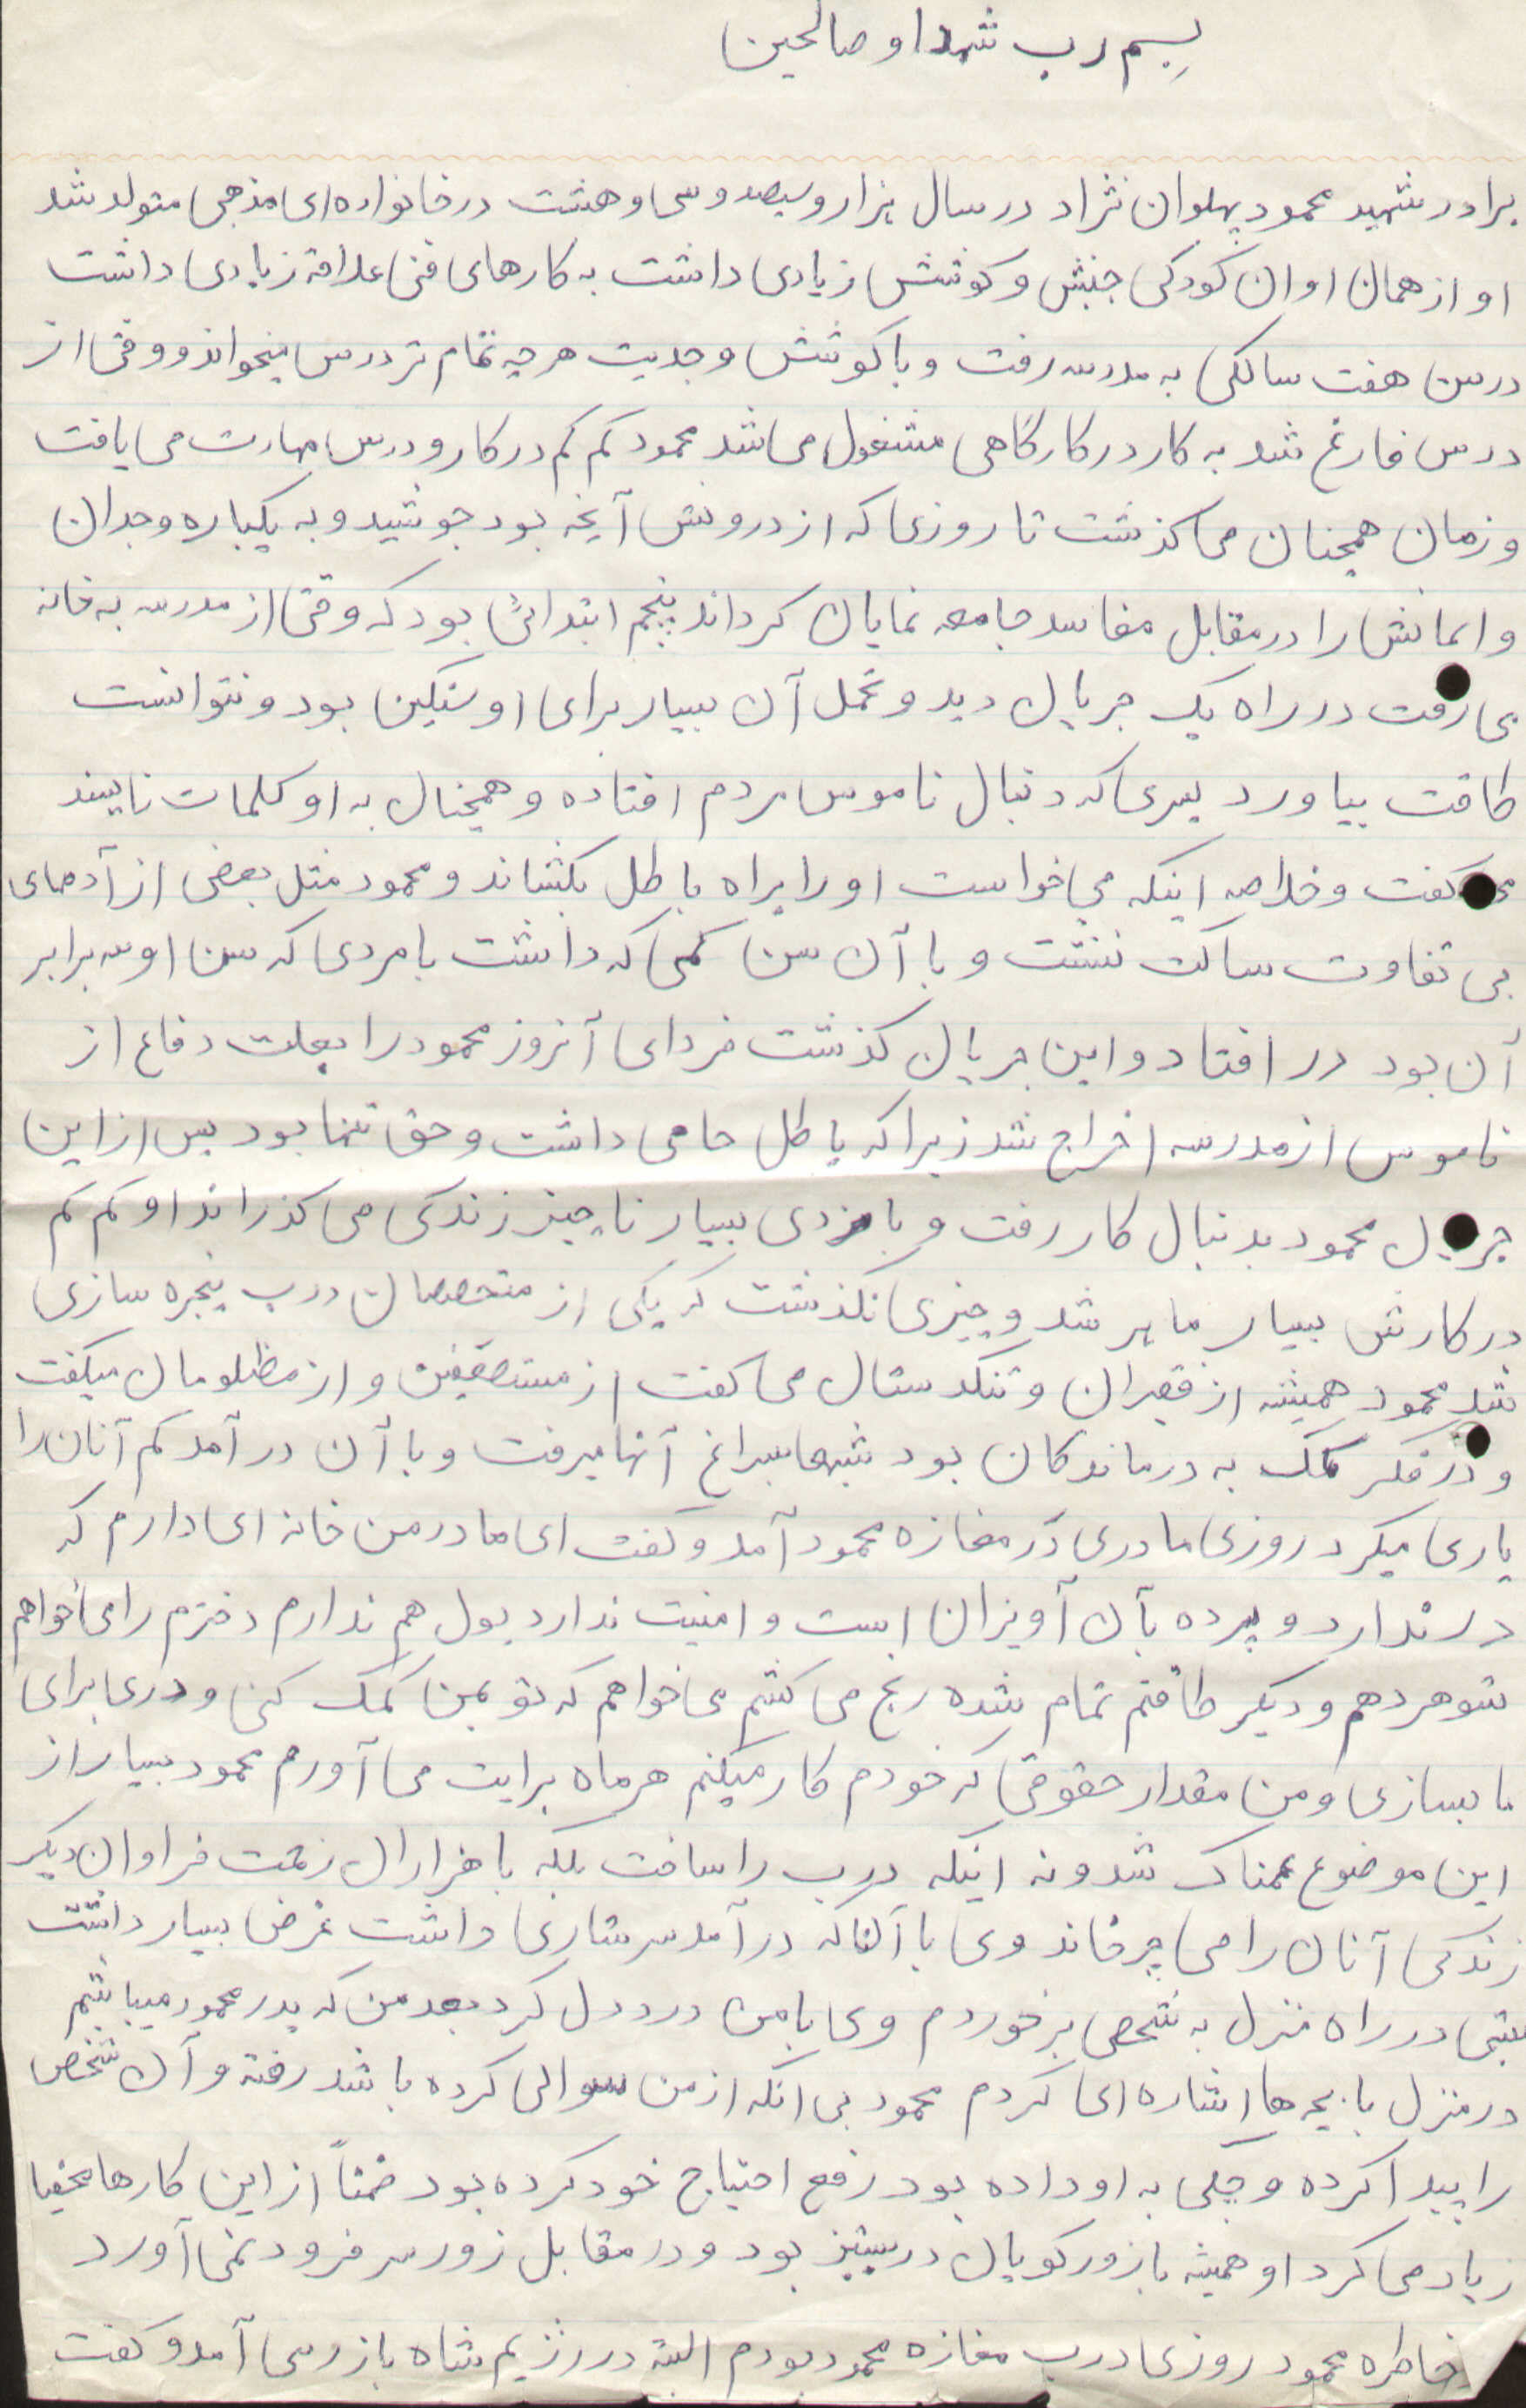 بسم رب شهدا و صالحین
برادر شهید محمود پهلوان نژاد در سال هزار و سیصد و سی و هشت در خانواده ای مذهبی متولد شد
او از همان اوان کودکی جنبش و کوشش زیادی داشت به کارهای فنی علاقه زیادی داشت
در سن هفت سالگی به مدرسه رفت و با کوشش و جدیت هر چه تمام تر درس میخواند و وقتی از
درس فارغ شد به کار در کارگاهی مشغول می شد محمود کم کم در کار و درس مهارت می یافت
و زمان همچنان می گذشت تا روزی که از درونش آنچه بود جوشید و به یکباره وجدان
و ایمانش را در مقابل مفاسد جامعه نمایان کرداند پنجم ابتدائی بود که وقتی از مدرسه به خانه
می رفت در راه یک جریان دید و تحمل آن بسیار برای او سنگین بود و نتوانست
طاقت بیاورد پسری که دنبال ناموس مردم افتاده و همچنان به او کلمات ناپسند
می گفت و خلاصه اینکه می خواست او را براه باطل بکشاند و محمود مثل بعضی از آدمهای
بی تفاوت ساکت ننشت و با آن سن کمی که داشت با مردی که سن او سه برابر
آن بود در افتاد و این جریان گذشت فردای آنروز محمود را بعلت دفاع از
ناموس از مدرسه اخراج شد زیرا که باطل حامی داشت و حق تنها بود پس از این
جریان محمود بدنبال کار رفت و با مزدی بسیار ناچیز زندگی می گذراند او کم کم
در کارش بسیار ماهر شد و چیزی نگذشت که یکی از متخصصان درب پنجره سازی
شد محمود همیشه از فقیران و تنگدستان می گفت از مستضعفین و از مظلومان میگفت
و در فکر کمک به درماندگان بود شبها بسراغ آنها میرفت و با آن در آمد کم آنان را
یاری میکرد روزی مادری در مغازه محمود آمد و گفت ای مادر من خانه ای دارم که
در ندارد و پرده بآن آویزان است و امنیت ندارد پول هم ندارم دخترم را می خواهم
شوهر دهم و دیگر طاقتم تمام شده رنج می کشم می خواهم که تو بمن کمک کنی و دری برای
ما بسازی و من مقدار حقوقی که خودم کار میکنم هر ماه برایت می آورم محمود بسیار از
این موضوع غمناک شد و نه اینکه درب را ساخت بلکه با هزاران زحمت فراوان دیگر
زندگی آنان را می چرخاند وی با آنکه در آمد سرشاری داشت قرض بسیار داشت
شبی در راه منزل به شخصی برخوردم وی با من درد دل کرد بعد من که پدر محمود میباشم
در منزل با بچه ها اشاره ای کردم محمود بی آنکه از من سوالی کرده باشد رفته و آن شخص
را پیدا کرده و چکی به او داده بود رفع احتیاج خود کرده بود ضمناً از این کارها مخفیا
زیاد می کرد او همیشه با زورگویان در ستیز بود و در مقابل زور سر فرود نمی آورد
خاطره محمود روزی درب مغازه محمود بودم البته در رژیم شاه بازرسی آمد و گفت